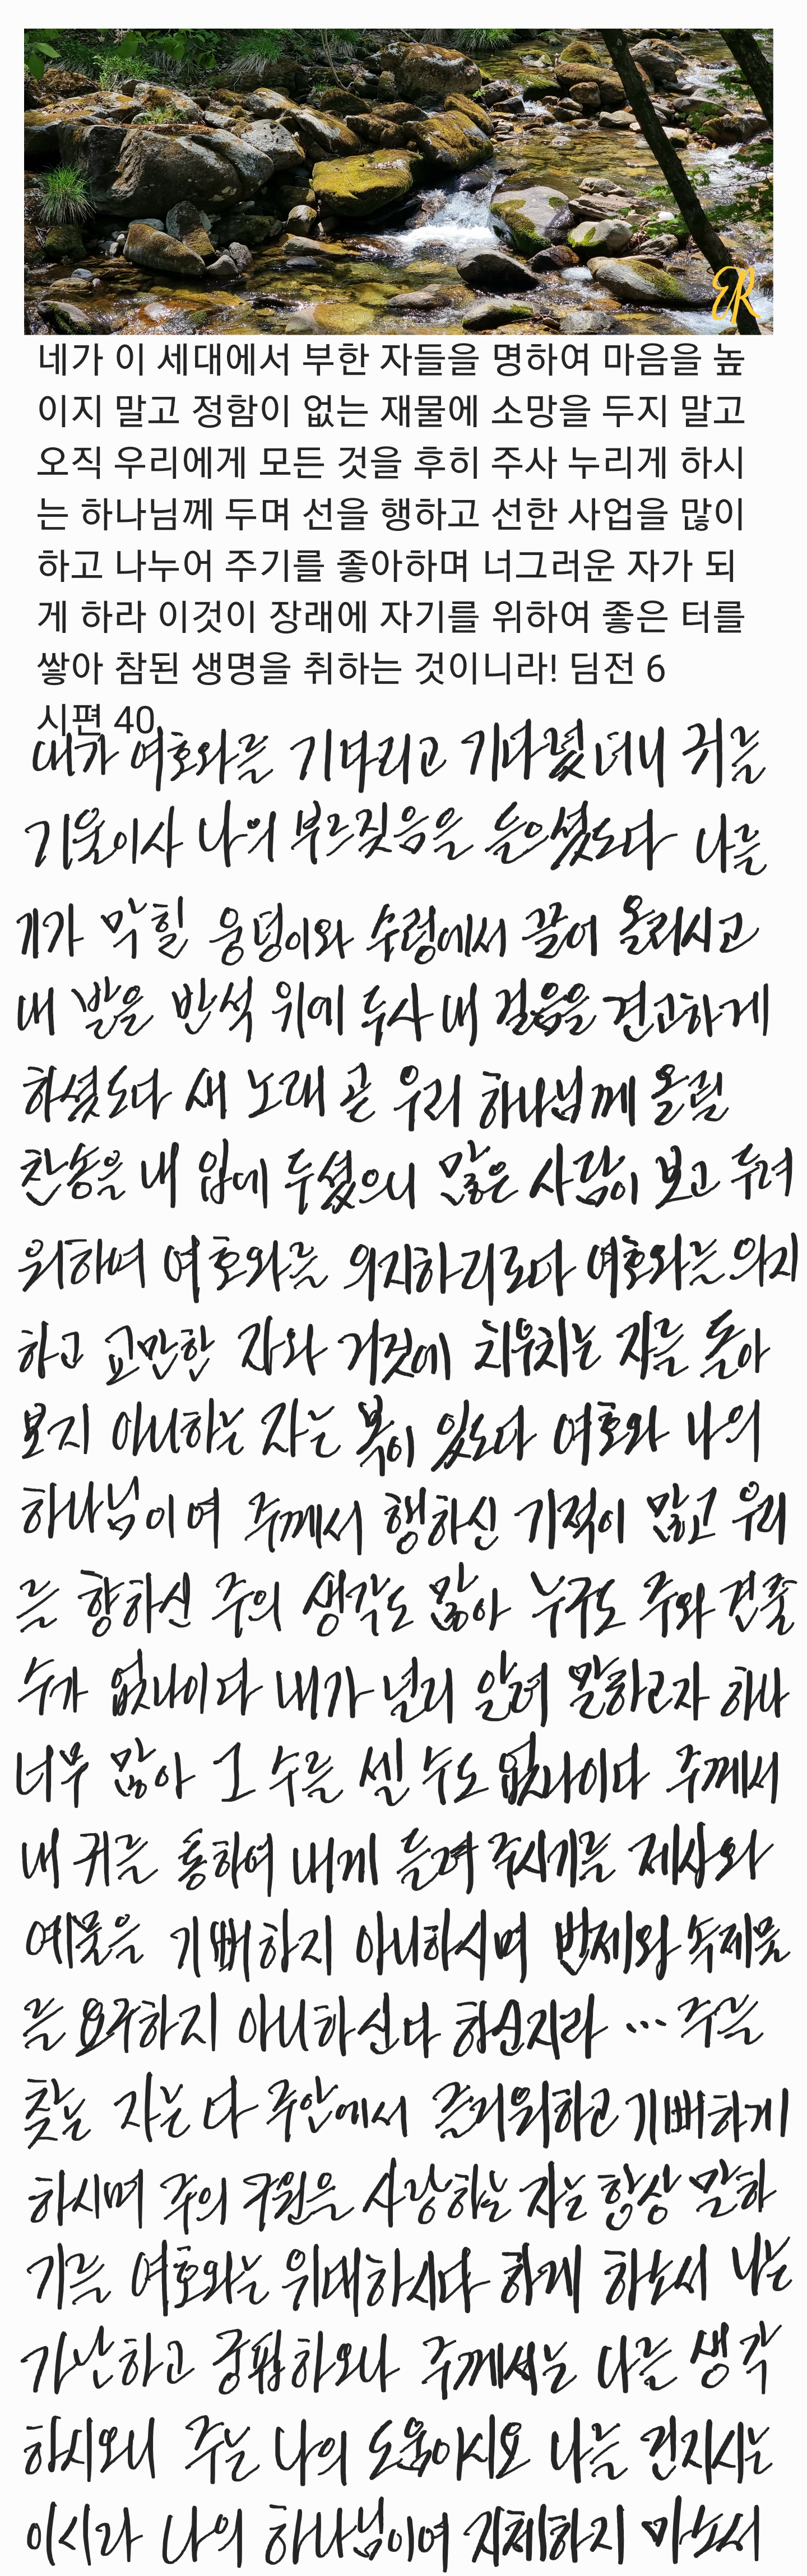 ER
네가 이 세대에서 부한 자들을 명하여 마음을 높
이지 말고 정함이 없는 재물에 소망을 두지 말고
오직 우리에게 모든 것을 후히 주사 누리게 하시
는 하나님께 두며 선을 행하고 선한 사업을 많이
하고 나누어 주기를 좋아하며 너그러운 자가 되
게 하라 이것이 장래에 자기를 위하여 좋은 터를
쌓아 참된 생명을 취하는 것이니라! 딤전 6
시편 40
내가 여호와를 기다리고 기다렸더니 귀를
기울이사 나의 부르짖음을 들으셨도다 나를
기가 막힐 웅덩이와 수렁에서 끌어 올리시고
내 발을 반석 위에 두사 내 걸음을 견고하게
하셨도다 새 노래 곧 우리 하나님께 올릴
찬송을 내 입에 두셨으니 많은 사람이 보고 두려
워하며 여호와를 의지하리로다 여호와를 의지
하고 교만한 자와 거짓에 치우치는 자를 돌아
보지 아니하는 자는 복이 있도다 여호와 나의
하나님이여 주께서 행하신 기적이 많고 우리
를 향하신 주의 생각도 많아 누구도 주와 견줄
수가 없나이다 내가 널리 알려 말하고자 하나
너무 많아 그 수를 셀 수도 없나이다 주께서
내 귀를 통하여 내게 들려 주시기를 제사와
예물을 기뻐하지 아니하시며 번제와 속제물
를 요구하지 아니하신다 하신지라 … 주를
찾는 자는 다 주안에서 즐거워하고 기뻐하게
하시며 주의 구원을 사랑하는 자는 항상 말하
기를 여호와는 위대하시다 하게 하소서 나는
가난하고 궁핍하오나 주께서는 나를 생각
하시오니 주는 나의 도움이시요 나를 건지시는
이시라 나의 하나님이여 지체하지 마소서